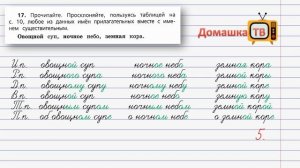 17. Прочитайте. Просклоняйте, пользуясь таблицей на
с. 10, любое из данных имён прилагательных вместе с име-
нем существительным.
Овощной суп, ночное небо, земная кора.
Домашка ТВ
И.п. овощной суп ночное небо земная кора
Р.п. овощного супа ночного неба земной коры
Д.п. овощному супу ночному небу земной коре
В.п. овощной суп ночное небо земную кору
Т.п. овощным супом ночным небом земной корой
П.п. об овощном супе о ночном небе о земной коре
5.